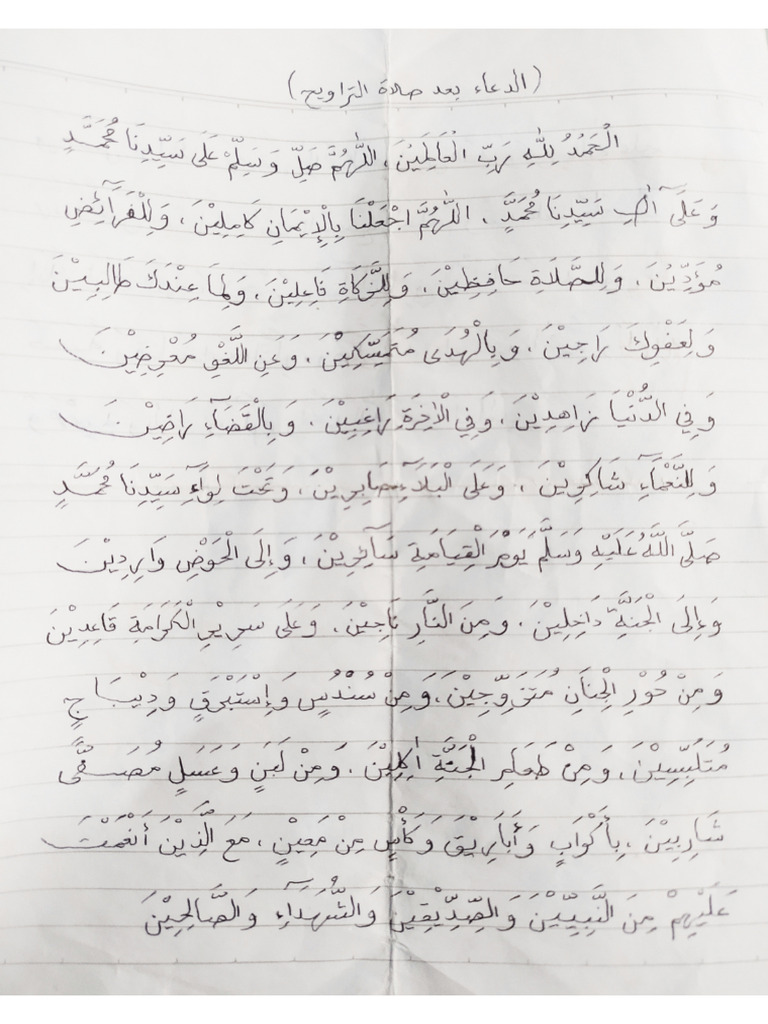 (الدعاء بعد صلاة التراويح)
الْحَمْدُ لِلّٰهِ رَبِّ الْعَالَمِيْنَ، اَللّٰهُمَّ صَلِّ وَسَلِّمْ عَلَى سَيِّدِنَا مُحَمَّدٍ
وَعَلَى آلِ سَيِّدِنَا مُحَمَّدٍ، اَللّٰهُمَّ اجْعَلْنَا بِالْإِيْمَانِ كَامِلِيْنَ، وَلِلْفَرَآئِضِ
مُؤَدِّيْنَ، وَلِلصَّلَاةِ حَافِظِيْنَ، وَلِلزَّكَاةِ فَاعِلِيْنَ، وَلِمَا عِنْدَكَ طَالِبِيْنَ
وَلِعَفْوِكَ رَاجِيْنَ، وَبِالْهُدَى مُتَمَسِّكِيْنَ، وَعَنِ اللَّغْوِ مُعْرِضِيْنَ
وَفِي الدُّنْيَا زَاهِدِيْنَ، وَفِي الْاٰخِرَةِ رَاغِبِيْنَ، وَبِالْقَضَآءِ رَاضِيْنَ
وَلِلنَّعْمَآءِ شَاكِرِيْنَ، وَعَلَى الْبَلَآءِ صَابِرِيْنَ، وَتَحْتَ لِوَآءِ سَيِّدِنَا مُحَمَّدٍ
صَلَّى اللّٰهُ عَلَيْهِ وَسَلَّمَ يَوْمَ الْقِيَامَةِ سَآئِرِيْنَ، وَإِلَى الْحَوْضِ وَارِدِيْنَ
وَإِلَى الْجَنَّةِ دَاخِلِيْنَ، وَمِنَ النَّارِ نَاجِيْنَ، وَعَلَى سَرِيْرِ الْكَرَامَةِ قَاعِدِيْنَ
وَمِنْ حُوْرِ الْجِنَانِ مُتَزَوِّجِيْنَ، وَمِنْ سُنْدُسٍ وَإِسْتَبْرَقٍ وَدِيْبَاجٍ
مُتَلَبِّسِيْنَ، وَمِنْ طَعَامِ الْجَنَّةِ اٰكِلِيْنَ، وَمِنْ لَبَنٍ وَعَسَلٍ مُصَفًّى
شَارِبِيْنَ، بِأَكْوَابٍ وَأَبَارِيْقَ وَكَأْسٍ مِنْ مَعِيْنٍ، مَعَ الَّذِيْنَ أَنْعَمْتَ
عَلَيْهِمْ مِنَ النَّبِيِّيْنَ وَالصِّدِّيْقِيْنَ وَالشُّهَدَآءِ وَالصَّالِحِيْنَ